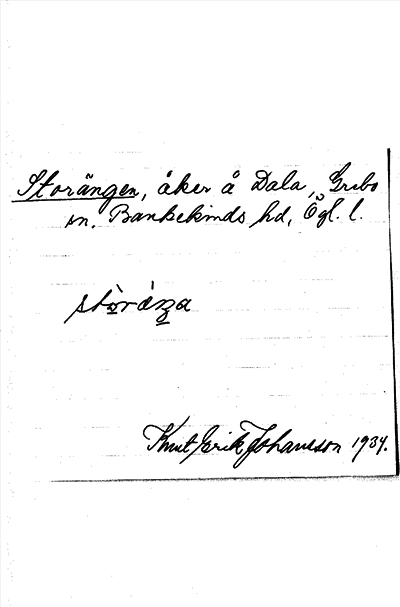 Storängen, åker å Dala, Grebo
sn. Bankekinds hd, Ögl. l.
Knut Erik Johansson 1934.